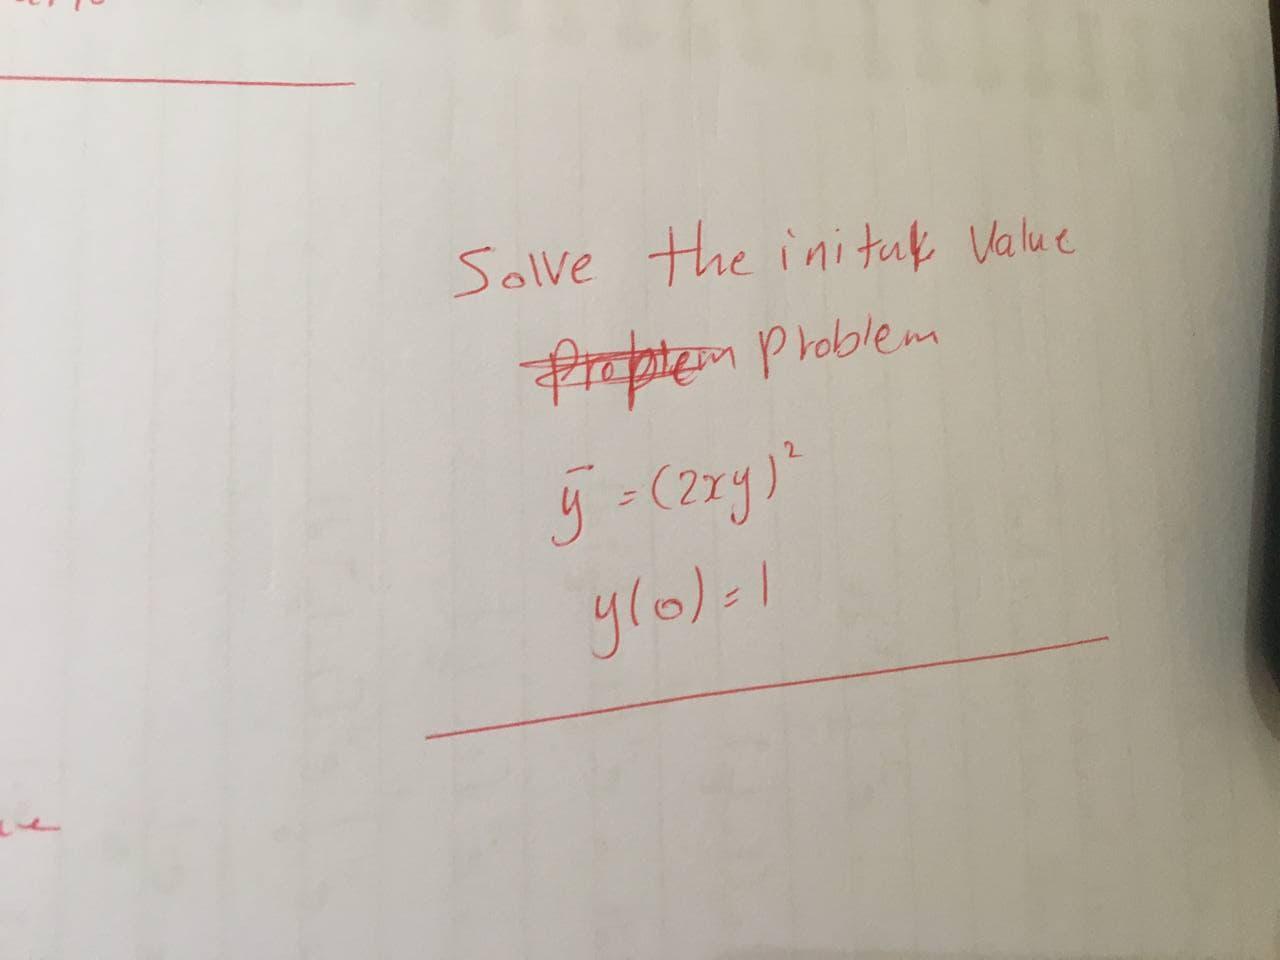 Solve the inituk Value
Problem problem
ȳ = (2xy)²
y(0) = 1